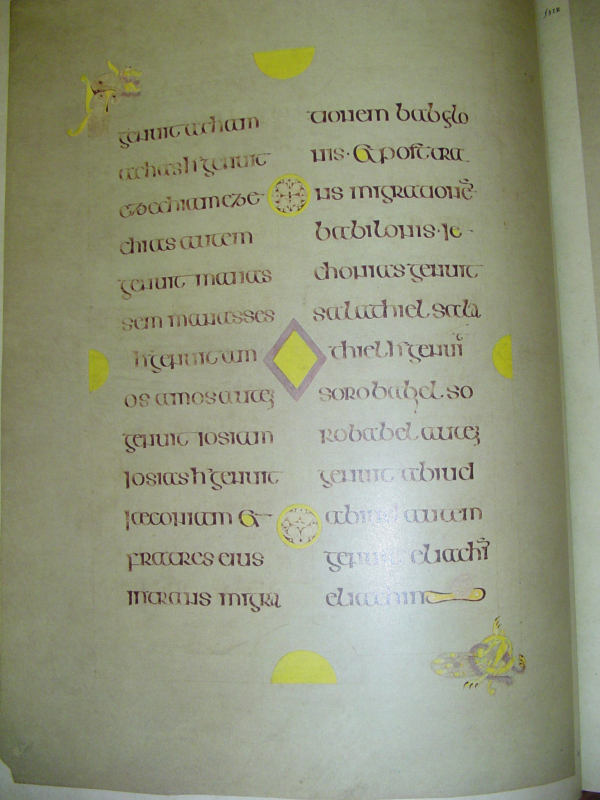 f31R
genuit acham
achas h genuit
ezechiam eze
chias autem
genuit manas
sem manasses
h genuit am
os amos auteʒ
genuit iosiam
iosias h genuit
iæconiam &
fratres eius
in trans migra
tionem babylo
nis · & post tra
ns migrationē
babilonis · ie
chonias genuit
salathiel sala
thiel h genuit
sorobabel so
robabel auteʒ
genuit abiud
abiud autem
genuit eliachī
eliachim